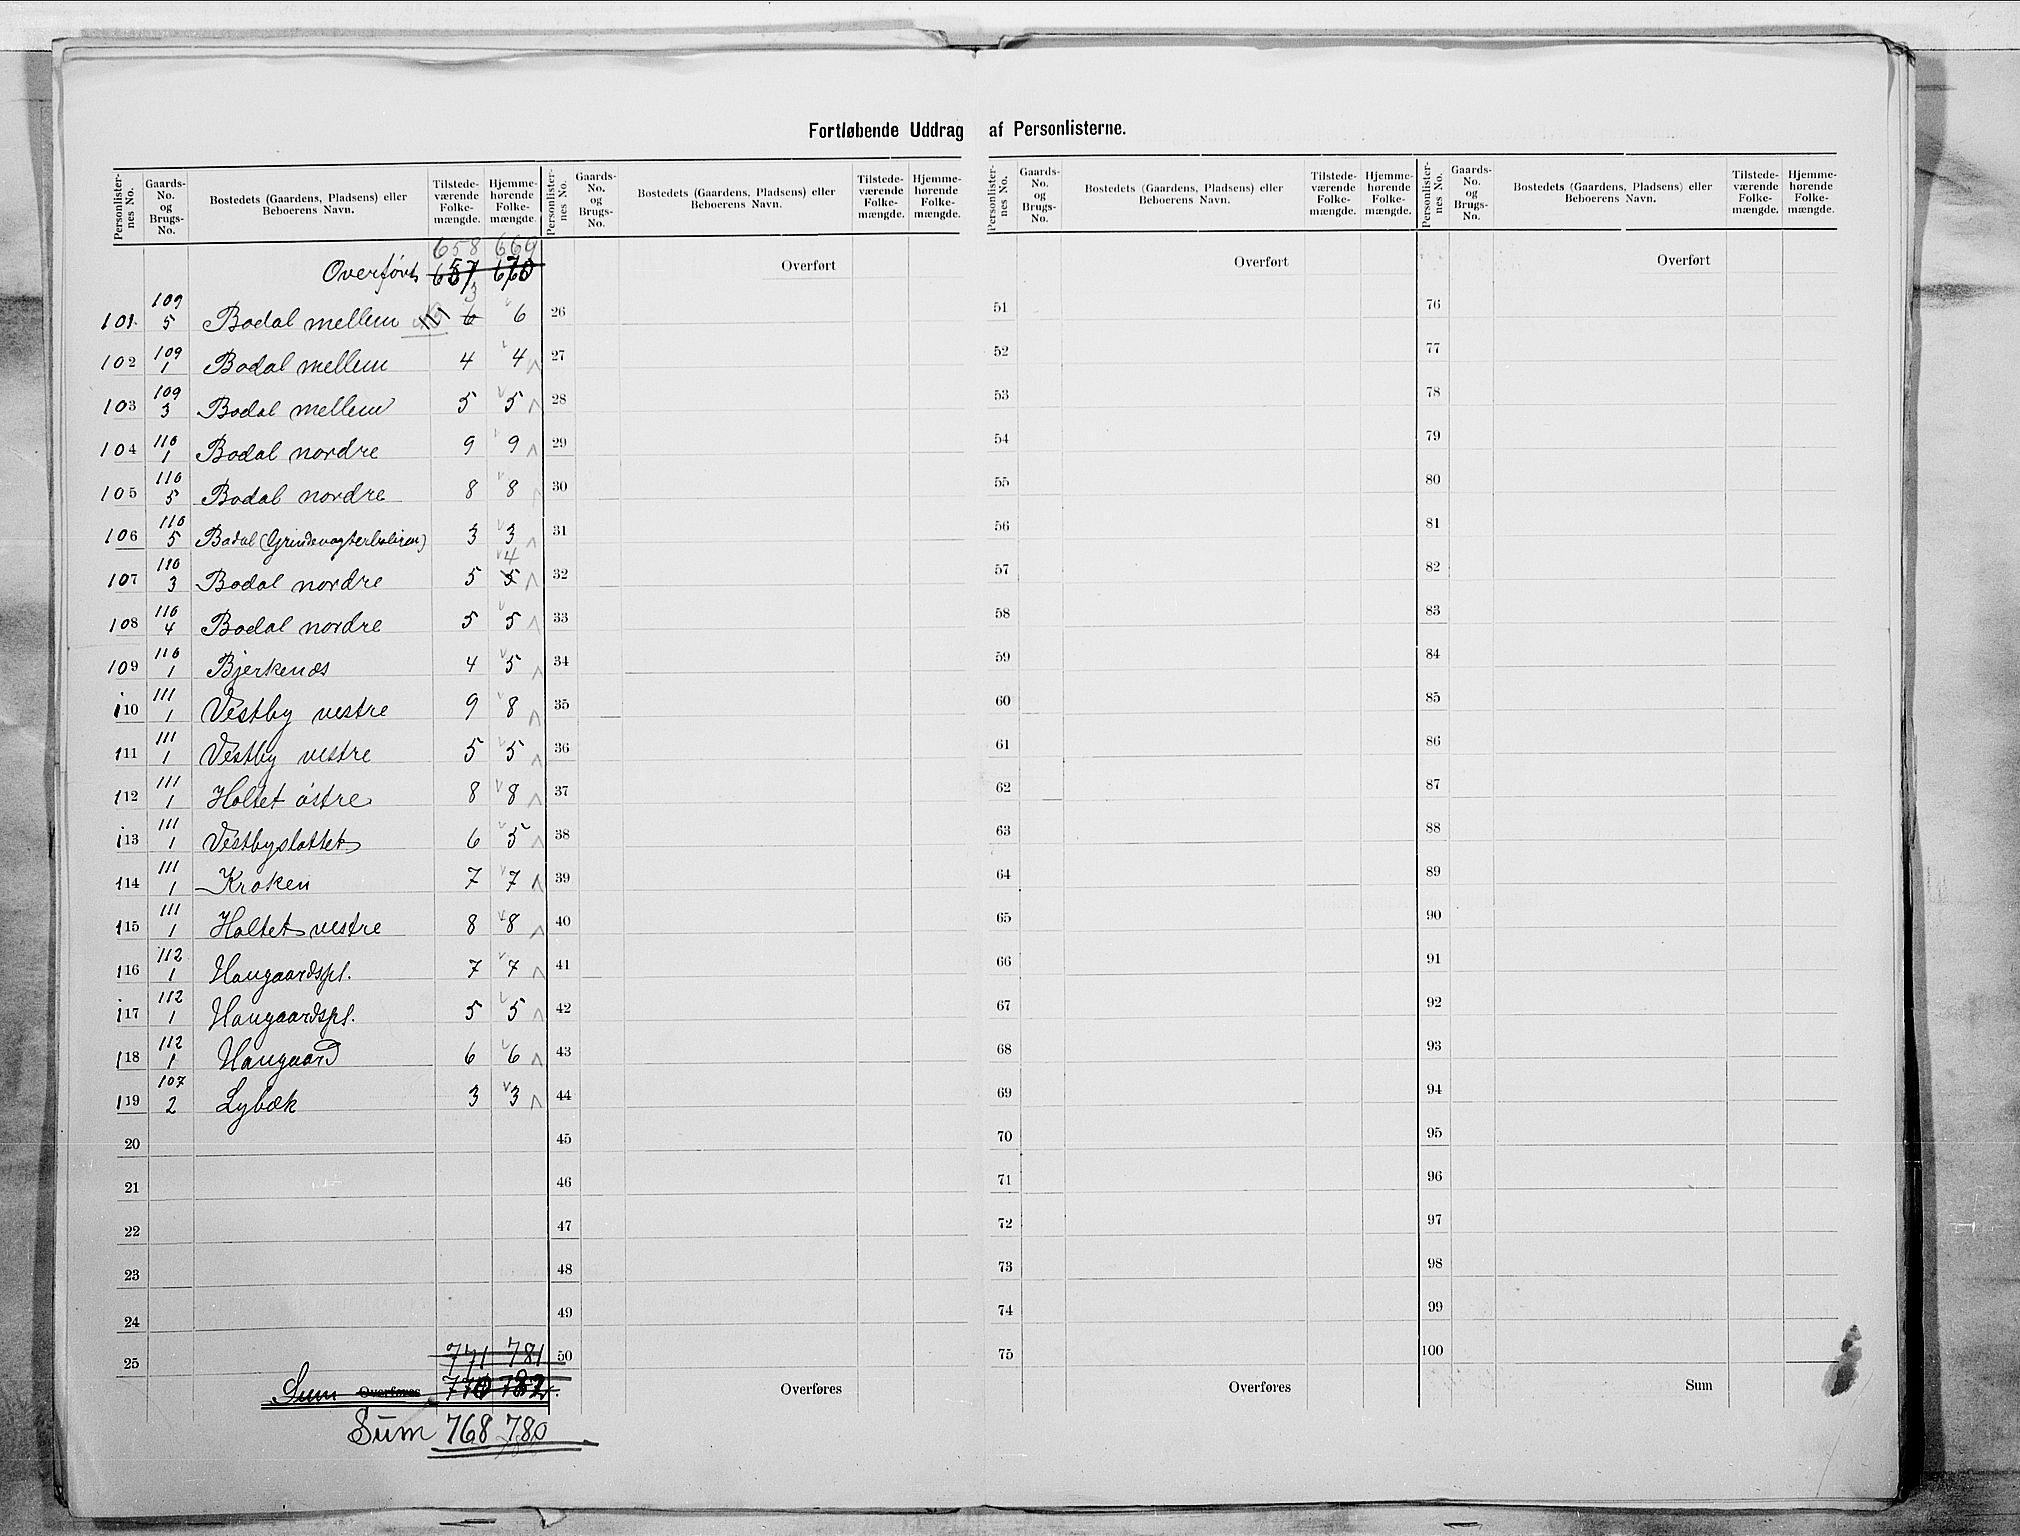 Fortløbende Uddrag af Personlisterne.
Personlisternes No. | Gaards-No. og Brugs-No. | Bostedets (Gaardens, Pladsens) eller Beboerens Navn. | Tilstedeværende Folkemængde. | Hjemmehørende Folkemængde.
658 669
Overført 657 670
101 109/5 Bodal mellem 3 6 6
102 109/1 Bodal mellem 4 4
103 109/3 Bodal mellem 5 5
104 110/1 Bodal nordre 9 9
105 110/5 Bodal nordre 8 8
106 110/5 Bodal (Grindevogterboligen) 3 3
107 110/3 Bodal nordre 5 5 4
108 110/4 Bodal nordre 5 5
109 110/1 Bjerkenæs 4 5
110 111/1 Vestby vestre 9 8
111 111/1 Vestby vestre 5 5
112 111/1 Holtet østre 8 8
113 111/1 Vestbyslottet 6 5
114 111/1 Kroken 7 7
115 111/1 Holtet vestre 8 8
116 112/1 Haugaardspl. 7 7
117 112/1 Haugaardspl. 5 5
118 112/1 Haugaard 6 6
119 107/2 Lybæk 3 3
20
21
22
23
24
25
771 781
Sum Overføres 770 782
Sum 768 780
Personlisternes No. | Gaards-No. og Brugs-No. | Bostedets (Gaardens, Pladsens) eller Beboerens Navn. | Tilstedeværende Folkemængde. | Hjemmehørende Folkemængde.
Overført
26
27
28
29
30
31
32
33
34
35
36
37
38
39
40
41
42
43
44
45
46
47
48
49
50
Overføres
Personlisternes No. | Gaards-No. og Brugs-No. | Bostedets (Gaardens, Pladsens) eller Beboerens Navn. | Tilstedeværende Folkemængde. | Hjemmehørende Folkemængde.
Overført
51
52
53
54
55
56
57
58
59
60
61
62
63
64
65
66
67
68
69
70
71
72
73
74
75
Overføres
Personlisternes No. | Gaards-No. og Brugs-No. | Bostedets (Gaardens, Pladsens) eller Beboerens Navn. | Tilstedeværende Folkemængde. | Hjemmehørende Folkemængde.
Overført
76
77
78
79
80
81
82
83
84
85
86
87
88
89
90
91
92
93
94
95
96
97
98
99
100
Sum